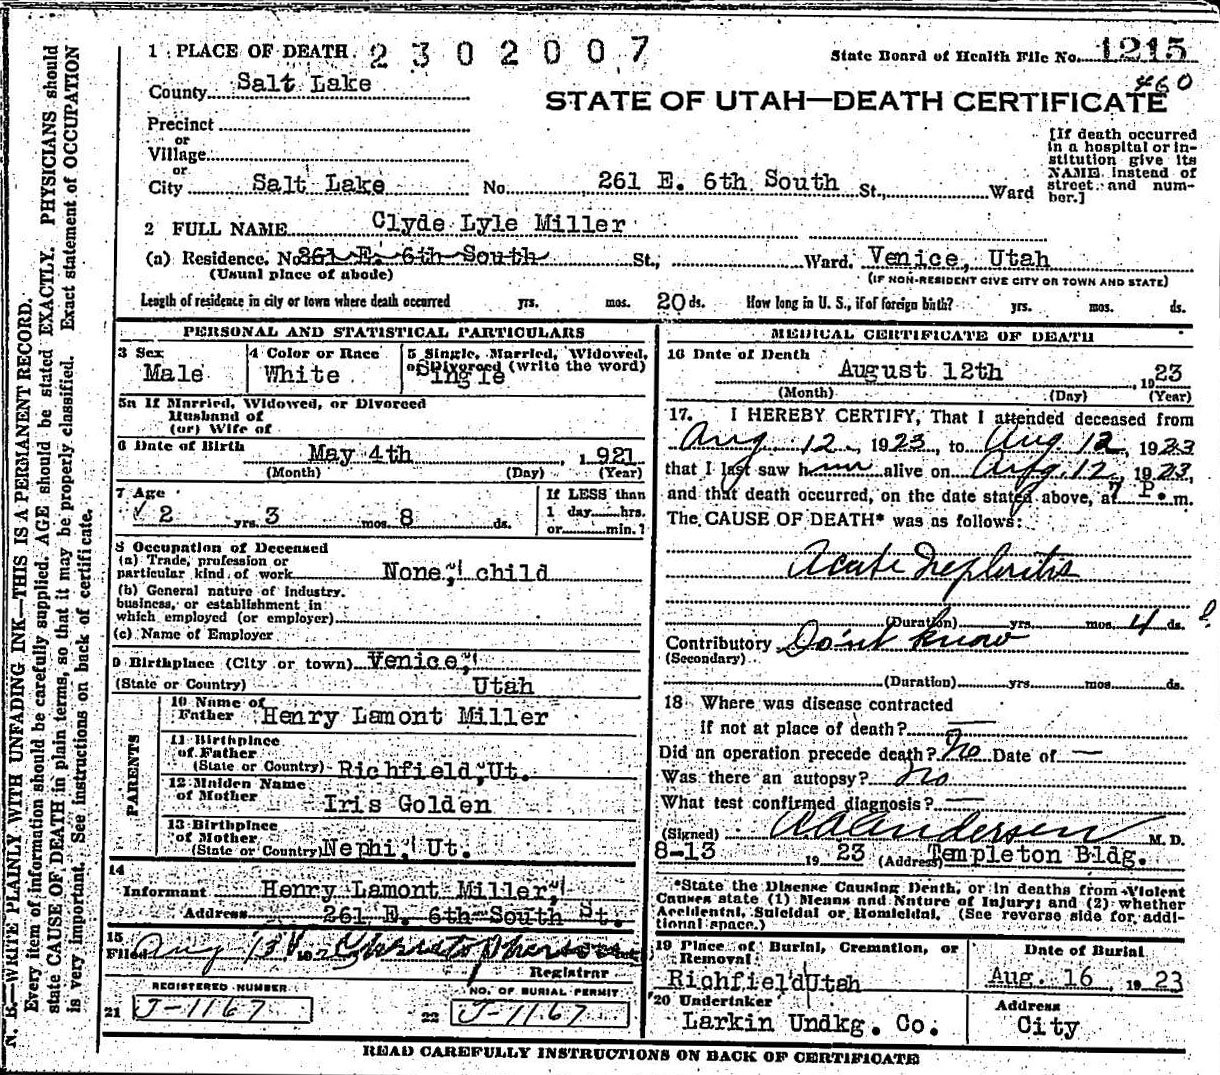 N. B.—WRITE PLAINLY WITH UNFADING INK—THIS IS A PERMANENT RECORD.
Every item of information should be carefully supplied. AGE should be stated EXACTLY. PHYSICIANS should
state CAUSE OF DEATH in plain terms, so that it may be properly classified. Exact statement of OCCUPATION
is very important. See instructions on back of certificate.
1 PLACE OF DEATH 2302007
State Board of Health File No. 1215
460
County Salt Lake
STATE OF UTAH—DEATH CERTIFICATE
Precinct
or
Village
or
City Salt Lake No. 261 E. 6th South St., Ward
[If death occurred
in a hospital or in-
stitution give its
NAME instead of
street and num-
ber.]
2 FULL NAME Clyde Lyle Miller
(a) Residence. No. 261 E. 6th South St., Ward. Venice, Utah
(Usual place of abode) (IF NON-RESIDENT GIVE CITY OR TOWN AND STATE)
Length of residence in city or town where death occurred yrs. mos. 20 ds. How long in U. S., if of foreign birth? yrs. mos. ds.
PERSONAL AND STATISTICAL PARTICULARS
3 Sex
Male
4 Color or Race
White
5 Single, Married, Widowed,
or Divorced (write the word)
Single
5a If Married, Widowed, or Divorced
Husband of
(or) Wife of
6 Date of Birth May 4th, 1921
(Month) (Day) (Year)
7 Age
2 yrs. 3 mos. 8 ds.
If LESS than
1 day hrs.
or min.?
8 Occupation of Deceased
(a) Trade, profession or
particular kind of work None, child
(b) General nature of industry,
business, or establishment in
which employed (or employer)
(c) Name of Employer
9 Birthplace (City or town) Venice,
(State or Country) Utah
PARENTS
10 Name of
Father Henry Lamont Miller
11 Birthplace
of Father
(State or Country) Richfield, Ut.
12 Maiden Name
of Mother Iris Golden
13 Birthplace
of Mother
(State or Country) Nephi, Ut.
14
Informant Henry Lamont Miller,
Address 261 E. 6th South St.
15
Filed Aug 13 192
Registrar
REGISTERED NUMBER
21 J-1167
NO. OF BURIAL PERMIT
22 J-1167
MEDICAL CERTIFICATE OF DEATH
16 Date of Death
August 12th, 1923
(Month) (Day) (Year)
17. I HEREBY CERTIFY, That I attended deceased from
Aug 12, 1923 to Aug. 12, 1923
that I last saw him alive on Aug. 12, 1923,
and that death occurred, on the date stated above, at 7 P. m.
The CAUSE OF DEATH* was as follows:
Acute Nephritis
(Duration) yrs. mos. 4 ds.
Contributory Don't know
(Secondary)
(Duration) yrs. mos. ds.
18 Where was disease contracted
If not at place of death? —
Did an operation precede death? No Date of —
Was there an autopsy? No
What test confirmed diagnosis? —
(Signed) A A Andersen M. D.
8-13 1923 (Address) Templeton Bldg.
*State the Disease Causing Death, or in deaths from Violent
Causes state (1) Means and Nature of Injury; and (2) whether
Accidental, Suicidal or Homicidal. (See reverse side for addi-
tional space.)
19 Place of Burial, Cremation, or
Removal
Richfield Utah
Date of Burial
Aug. 16 1923
20 Undertaker
Larkin Undkg. Co.
Address
City
READ CAREFULLY INSTRUCTIONS ON BACK OF CERTIFICATE